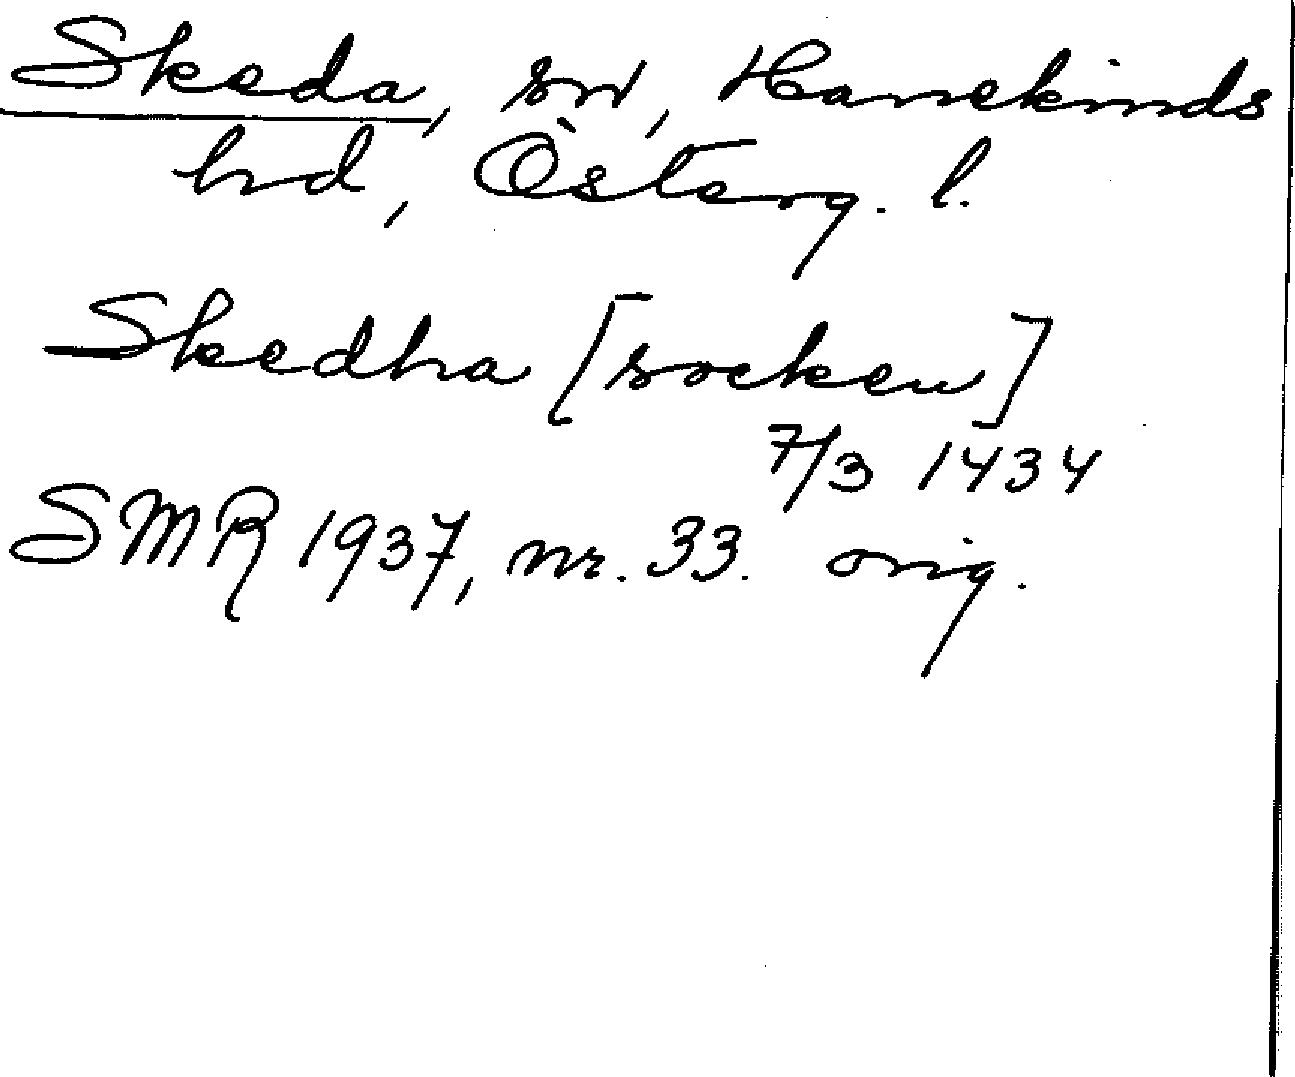 Skeda, sn, Hanekinds
hd, Österg. l.
Skedha [socken]
7/3 1434
SMR 1937, nr. 33. orig.